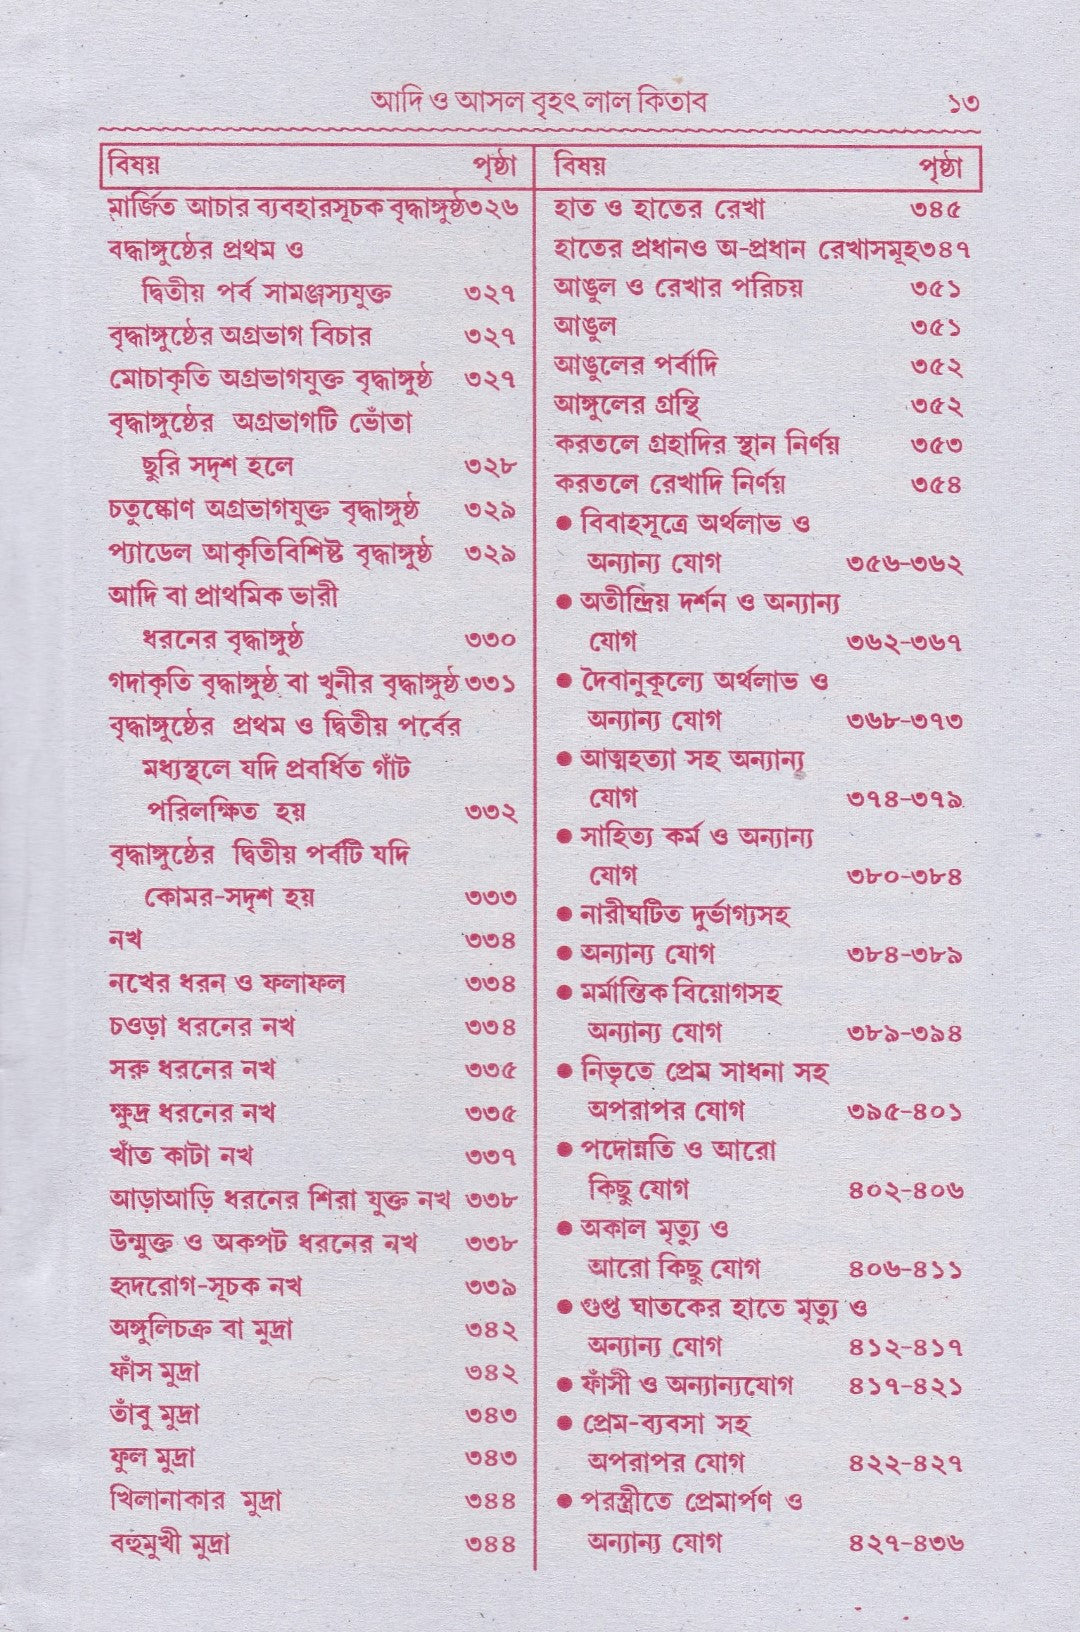 আদি ও আসল বৃহৎ লাল কিতাব ১৩
বিষয় পৃষ্ঠা
মার্জিত আচার ব্যবহারসূচক বৃদ্ধাঙ্গুষ্ঠ৩২৬
বদ্ধাঙ্গুষ্ঠের প্রথম ও
দ্বিতীয় পর্ব সামঞ্জস্যযুক্ত ৩২৭
বৃদ্ধাঙ্গুষ্ঠের অগ্রভাগ বিচার ৩২৭
মোচাকৃতি অগ্রভাগযুক্ত বৃদ্ধাঙ্গুষ্ঠ ৩২৭
বৃদ্ধাঙ্গুষ্ঠের অগ্রভাগটি ভোঁতা
ছুরি সদৃশ হলে ৩২৮
চতুষ্কোণ অগ্রভাগযুক্ত বৃদ্ধাঙ্গুষ্ঠ ৩২৯
প্যাডেল আকৃতিবিশিষ্ট বৃদ্ধাঙ্গুষ্ঠ ৩২৯
আদি বা প্রাথমিক ভারী
ধরনের বৃদ্ধাঙ্গুষ্ঠ ৩৩০
গদাকৃতি বৃদ্ধাঙ্গুষ্ঠ বা খুনীর বৃদ্ধাঙ্গুষ্ঠ ৩৩১
বৃদ্ধাঙ্গুষ্ঠের প্রথম ও দ্বিতীয় পর্বের
মধ্যস্থলে যদি প্রবর্ধিত গাঁট
পরিলক্ষিত হয় ৩৩২
বৃদ্ধাঙ্গুষ্ঠের দ্বিতীয় পর্বটি যদি
কোমর-সদৃশ হয় ৩৩৩
নখ ৩৩৪
নখের ধরন ও ফলাফল ৩৩৪
চওড়া ধরনের নখ ৩৩৪
সরু ধরনের নখ ৩৩৫
ক্ষুদ্র ধরনের নখ ৩৩৫
খাঁত কাটা নখ ৩৩৭
আড়াআড়ি ধরনের শিরা যুক্ত নখ ৩৩৮
উন্মুক্ত ও অকপট ধরনের নখ ৩৩৮
হৃদরোগ-সূচক নখ ৩৩৯
অঙ্গুলিচক্র বা মুদ্রা ৩৪২
ফাঁস মুদ্রা ৩৪২
তাঁবু মুদ্রা ৩৪৩
ফুল মুদ্রা ৩৪৩
খিলানাকার মুদ্রা ৩৪৪
বহুমুখী মুদ্রা ৩৪৪
বিষয় পৃষ্ঠা
হাত ও হাতের রেখা ৩৪৫
হাতের প্রধানও অ-প্রধান রেখাসমূহ৩৪৭
আঙুল ও রেখার পরিচয় ৩৫১
আঙুল ৩৫১
আঙুলের পর্বাদি ৩৫২
আঙ্গুলের গ্রন্থি ৩৫২
করতলে গ্রহাদির স্থান নির্ণয় ৩৫৩
করতলে রেখাদি নির্ণয় ৩৫৪
● বিবাহসূত্রে অর্থলাভ ও
অন্যান্য যোগ ৩৫৬-৩৬২
● অতীন্দ্রিয় দর্শন ও অন্যান্য
যোগ ৩৬২-৩৬৭
● দৈবানুকূল্যে অর্থলাভ ও
অন্যান্য যোগ ৩৬৮-৩৭৩
● আত্মহত্যা সহ অন্যান্য
যোগ ৩৭৪-৩৭৯
● সাহিত্য কর্ম ও অন্যান্য
যোগ ৩৮০-৩৮৪
● নারীঘটিত দুর্ভাগ্যসহ
● অন্যান্য যোগ ৩৮৪-৩৮৯
● মর্মান্তিক বিয়োগসহ
অন্যান্য যোগ ৩৮৯-৩৯৪
● নিভৃতে প্রেম সাধনা সহ
অপরাপর যোগ ৩৯৫-৪০১
● পদোন্নতি ও আরো
কিছু যোগ ৪০২-৪০৬
● অকাল মৃত্যু ও
আরো কিছু যোগ ৪০৬-৪১১
● গুপ্ত ঘাতকের হাতে মৃত্যু ও
অন্যান্য যোগ ৪১২-৪১৭
● ফাঁসী ও অন্যান্যযোগ ৪১৭-৪২১
● প্রেম-ব্যবসা সহ
অপরাপর যোগ ৪২২-৪২৭
● পরস্ত্রীতে প্রেমার্পণ ও
অন্যান্য যোগ ৪২৭-৪৩৬